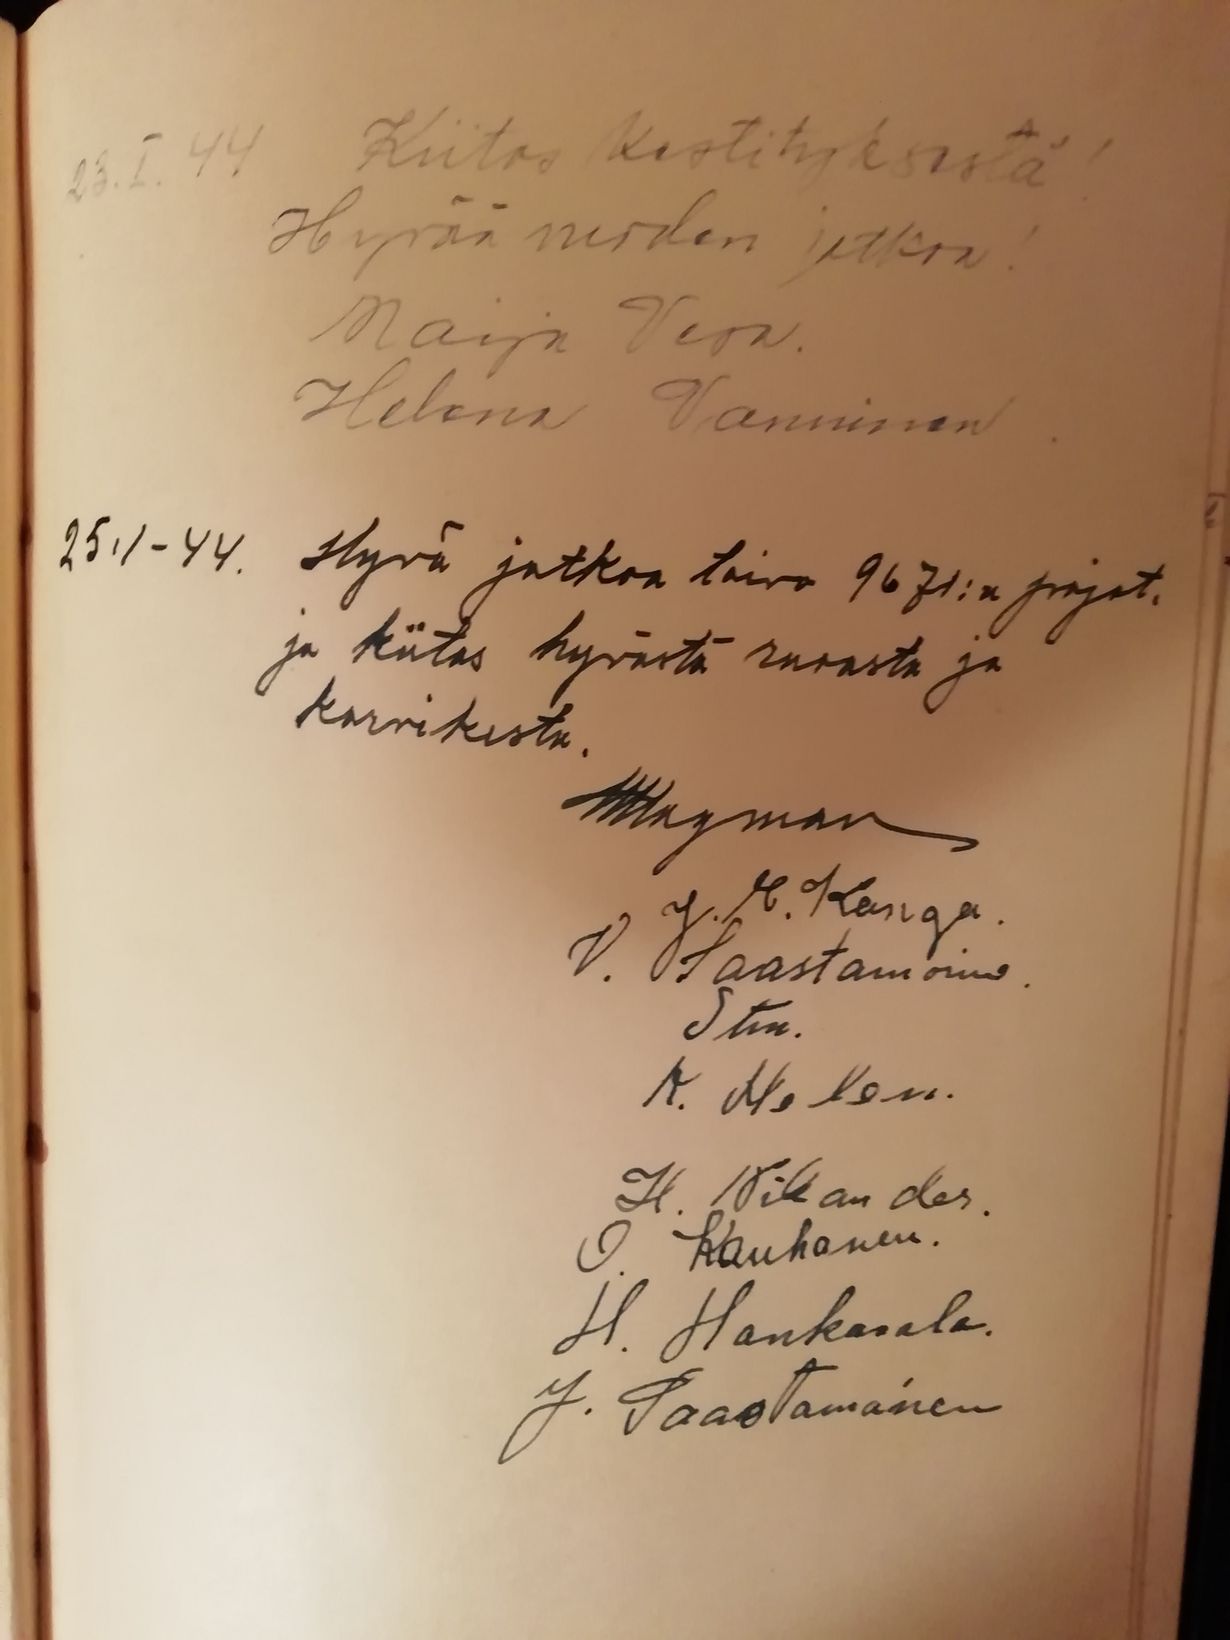 23.I.44 Kiitos kestityksestä!
Hyvää vuoden jatkoa!
Maija Vesa.
Helena Vanninen.
25.1-44. Hyvä jatkoa toivo 9671:n pojat.
ja kiitos hyvästä ruuasta ja
korvikesta.
Hagman
J. E. Kanga.
V. Saastamoine.
Sten.
A. Melen.
H. Wikander.
O. Kauhanen.
H. Hankasalo.
J. Saastamoinen